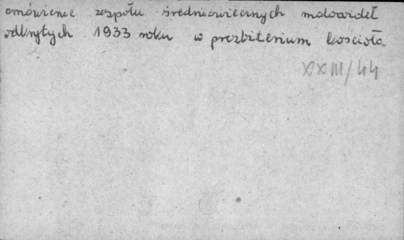 omówienie zespołu średniowiecznych malowideł
odkrytych 1933 roku w prezbiterium kościoła
XXIII/44